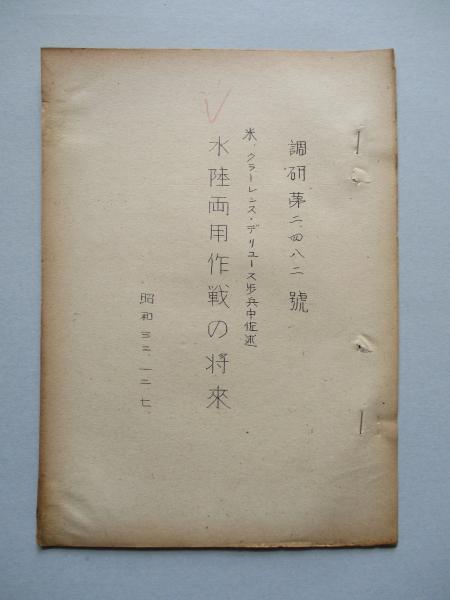 調研第二、四八二號
米、クラーレンス・デリユース歩兵中佐述
水陸両用作戦の将來
昭和三二、一二、七、